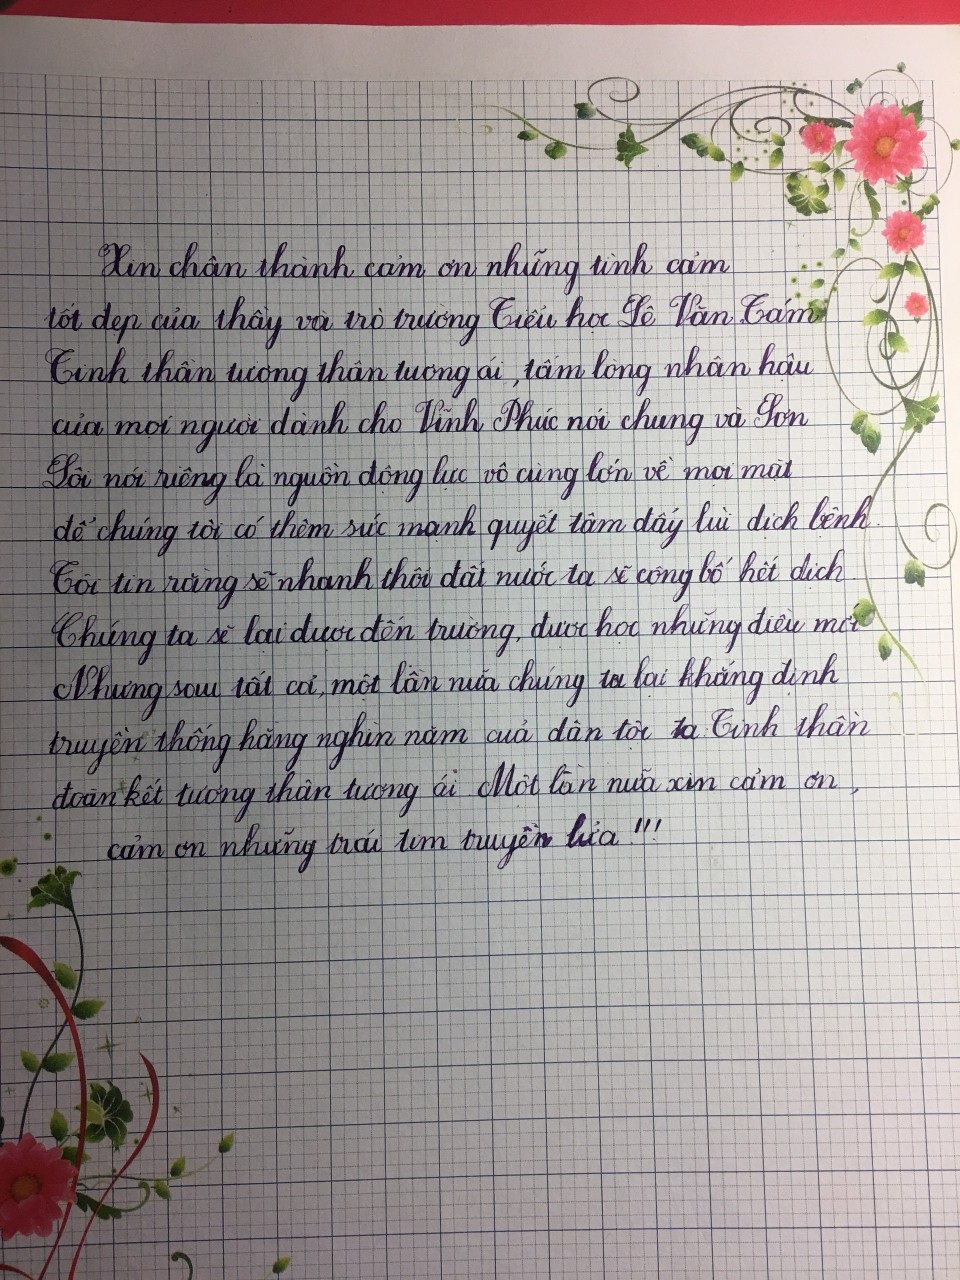 Xin chân thành cảm ơn những tình cảm
tốt đẹp của thầy và trò trường Tiểu học Lê Văn Tám
Tinh thần tương thân tương ái, tấm lòng nhân hậu
của mọi người dành cho Vĩnh Phúc nói chung và Sơn
Lôi nói riêng là nguồn động lực vô cùng lớn về mọi mặt
để chúng tôi có thêm sức mạnh quyết tâm đẩy lùi dịch bệnh.
Tôi tin rằng sẽ nhanh thôi đất nước ta sẽ công bố hết dịch.
Chúng ta sẽ lại được đến trường, được học những điều mới
Nhưng sau tất cả, một lần nữa chúng ta lại khẳng định
truyền thống hàng nghìn năm của dân tộc ta Tinh thần
đoàn kết tương thân tương ái Một lần nữa xin cảm ơn,
cảm ơn những trái tim truyền lửa !!!